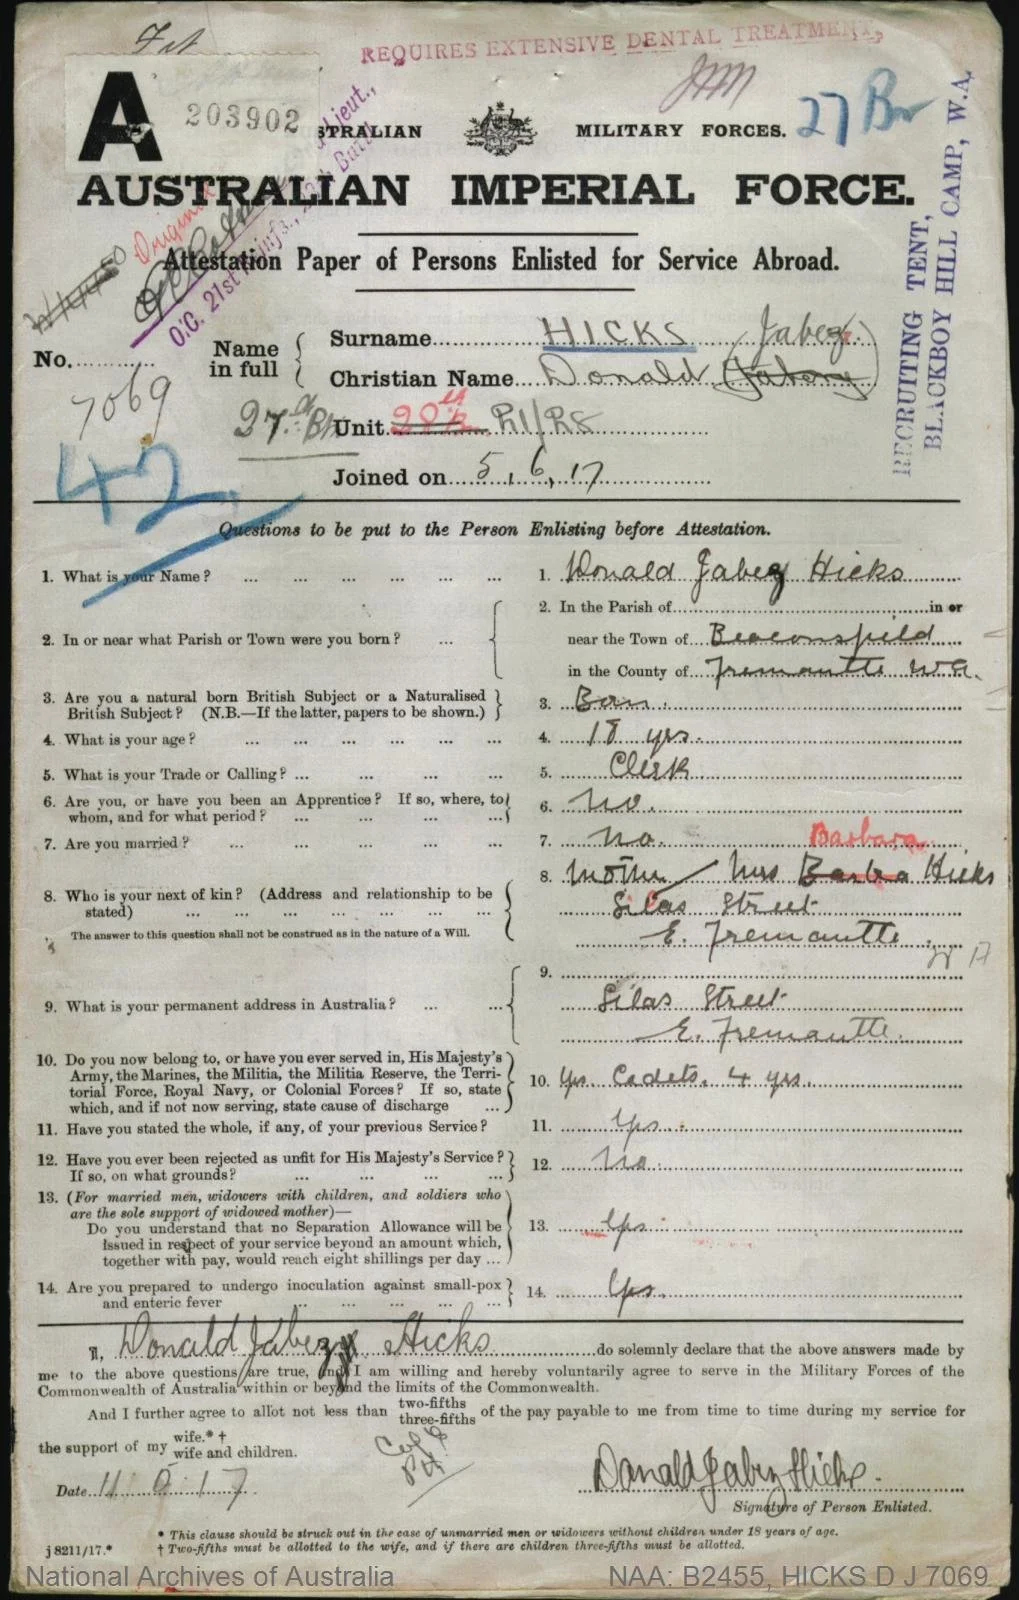 REQUIRES EXTENSIVE DENTAL TREATMENT,
A
203902
27 Bn
AUSTRALIAN MILITARY FORCES.
AUSTRALIAN IMPERIAL FORCE.
Original
O.C. 21st Reinfs., 28th Battn
Lieut.,
RECRUITING TENT,
BLACKBOY HILL CAMP, W.A.
Attestation Paper of Persons Enlisted for Service Abroad.
No. 7069
Name in full
Surname HICKS
Christian Name Donald Jabez
Unit 28th 21/28
Joined on 5.6.17
42
Questions to be put to the Person Enlisting before Attestation.
1. What is your Name? ... 1. Donald Jabez Hicks
2. In or near what Parish or Town were you born? ... 2. In the Parish of in or
near the Town of Beaconsfield
in the County of Fremantle WA.
3. Are you a natural born British Subject or a Naturalised
British Subject? (N.B.—If the latter, papers to be shown.) 3. Born.
4. What is your age? ... 4. 18 yrs.
5. What is your Trade or Calling? ... 5. Clerk
6. Are you, or have you been an Apprentice? If so, where, to
whom, and for what period? ... 6. No.
7. Are you married? ... 7. No.
Barbara
8. Who is your next of kin? (Address and relationship to be
stated) ... 8. Mother Mrs Hicks
Silas Street
The answer to this question shall not be construed as in the nature of a Will.
E. Fremantle W A
9. What is your permanent address in Australia? ... 9.
Silas Street
E. Fremantle.
10. Do you now belong to, or have you ever served in, His Majesty's
Army, the Marines, the Militia, the Militia Reserve, the Terri-
torial Force, Royal Navy, or Colonial Forces? If so, state
which, and if not now serving, state cause of discharge ... 10. Yes Cadets. 4 yrs.
11. Have you stated the whole, if any, of your previous Service? 11. Yes.
12. Have you ever been rejected as unfit for His Majesty's Service?
If so, on what grounds? ... 12. No.
13. (For married men, widowers with children, and soldiers who
are the sole support of widowed mother)—
Do you understand that no Separation Allowance will be
issued in respect of your service beyond an amount which,
together with pay, would reach eight shillings per day ... 13. Yes
14. Are you prepared to undergo inoculation against small-pox
and enteric fever ... 14. Yes.
I, Donald Jabez Hicks do solemnly declare that the above answers made by
me to the above questions are true, and I am willing and hereby voluntarily agree to serve in the Military Forces of the
Commonwealth of Australia within or beyond the limits of the Commonwealth.
And I further agree to allot not less than two-fifths three-fifths of the pay payable to me from time to time during my service for
the support of my wife.* † wife and children.
Date
Donald Jabez Hicks.
Signature of Person Enlisted.
* This clause should be struck out in the case of unmarried men or widowers without children under 18 years of age.
j 8211/17.* † Two-fifths must be allotted to the wife, and if there are children three-fifths must be allotted.
National Archives of Australia NAA: B2455, HICKS D J 7069